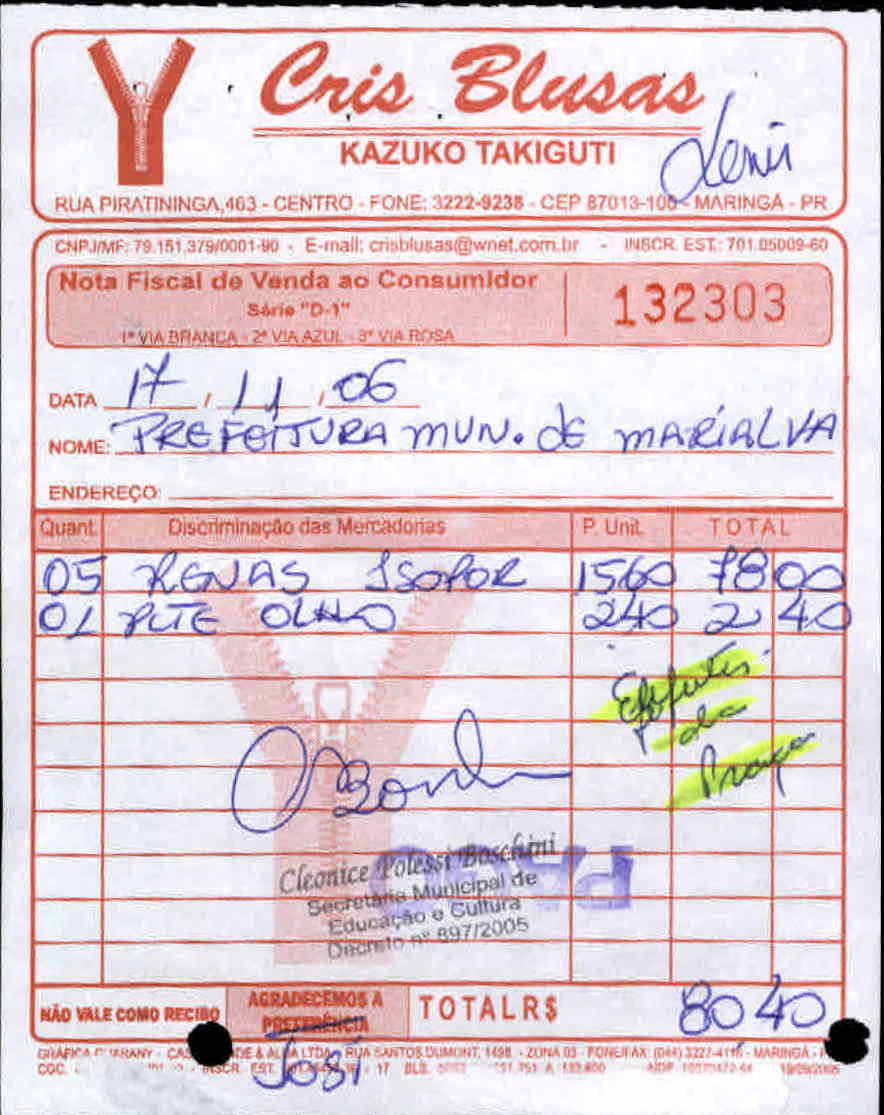 Cris Blusas
KAZUKO TAKIGUTI
RUA PIRATININGA,463 - CENTRO - FONE: 3222-9238 - CEP 87013-100 - MARINGÁ - PR
CNPJ/MF: 79.151.379/0001-90 - E-mail: crisblusas@wnet.com.br - INSCR. EST.: 701.05009-60
Nota Fiscal de Venda ao Consumidor
Série "D-1"
132303
1ª VIA BRANCA - 2ª VIA AZUL - 3ª VIA ROSA
DATA 17 / 11 / 06
NOME: PREFEITURA MUN. DE MARIALVA
ENDEREÇO:
Quant. Discriminação das Mercadorias P. Unit. TOTAL
05 RENAS ISOPOR 1560 7800
01 PCTE OLHO 240 2 40
da
Praça
Cleonice Polessi Boschini
Secretária Municipal de
Educação e Cultura
Decreto nº 897/2005
NÃO VALE COMO RECIBO
AGRADECEMOS A
PREFERÊNCIA
TOTAL R$ 80 40
RUA SANTOS DUMONT, 1498 - ZONA 03 - FONE/FAX: (044) 3227-4116 - MARINGÁ
19/09/2005